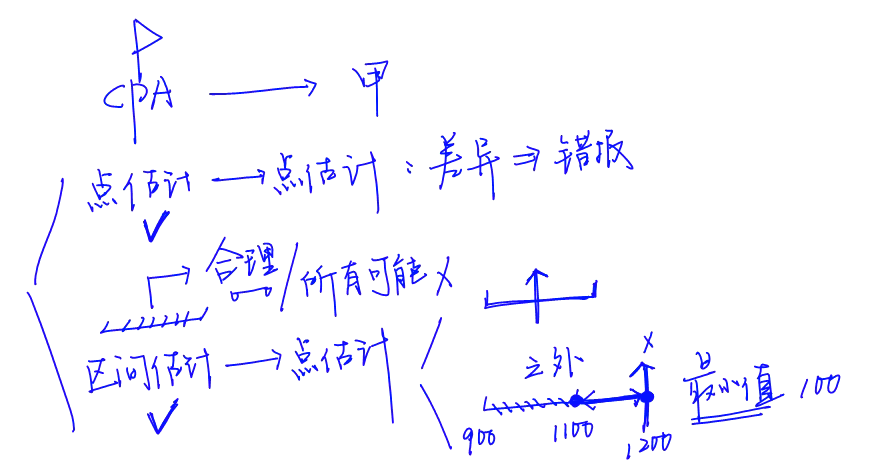 CPA → 甲
点估计 → 点估计：差异 ⇒ 错报
→ 合理/所有可能 X
区间估计 → 点估计
之外 X
最小值 100
900 1100 1200